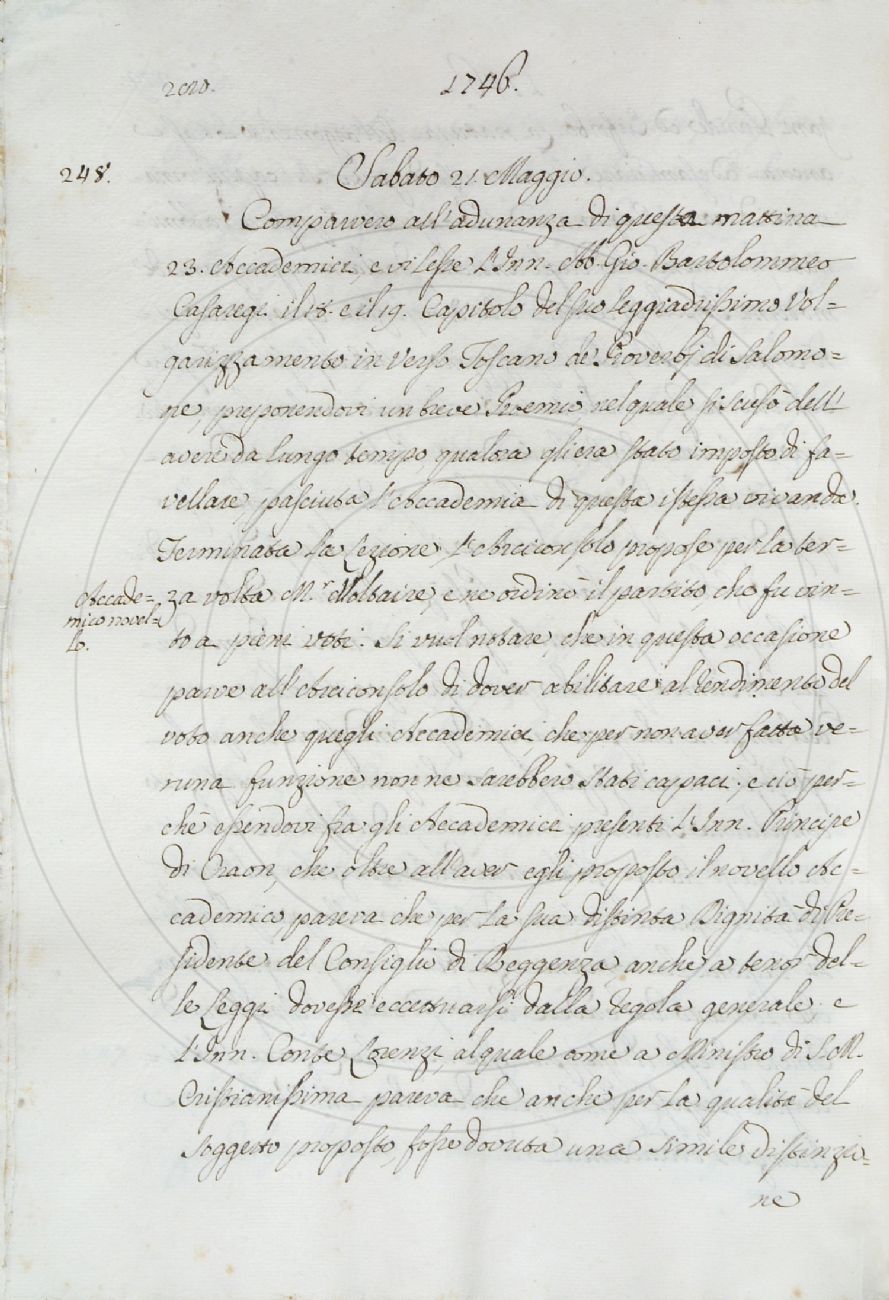 1746.
248.
Sabato 21. Maggio.
Comparvero all'adunanza di questa mattina
23. Accademici, e vi lesse l'Inn. Ab. Gio. Bartolommeo
Casaregi il 18. e il 19. Capitolo del suo leggiadrissimo Vol=
garizzamento in verso Toscano de' Proverbj di Salomo=
ne, preponendovi un breve Proemio nel quale si scusò dell'
avere da lungo tempo qualora gli era stato imposto di fa=
vellare, pasciuta l'Accademia di questa istessa vivanda.
Terminata la Lezione, l'Arciconsolo propose per la ter=
Accade=
mico novel=
lo.
za volta M.r Voltaire, e ne ordinò il partito, che fu vin=
to a pieni voti. Si vuol notare, che in questa occasione
parve all'Arciconsolo di dover abilitare al rendimento del
voto anche quegli Accademici, che per non aver fatta ve=
runa funzione non ne sarebbero stati capaci; e ciò per=
chè essendovi fra gli Accademici presenti l'Inn. Principe
di Craon, che oltre all'aver egli proposto il novello Ac=
cademico pareva che per la sua distinta Dignità di Pre=
sidente del Consiglio di Reggenza, anche a tenor del=
le Leggi dovesse eccettuarsi dalla regola generale; e
l'Inn. Conte Lorenzi, al quale come a Ministro di S. M.
Cristianissima pareva che anche per la qualità del
soggetto proposto, fosse dovuta una simile distinzio=
ne